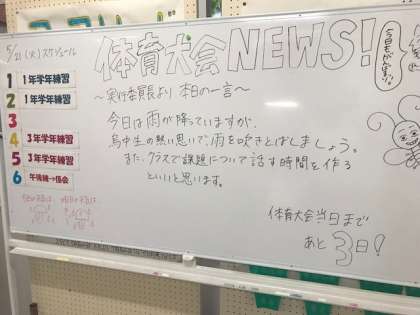 5/21(火)スケジュール
体育大会NEWS!
1 1年学年練習
2 1年学年練習
3
4 3年学年練習
5 3年学年練習
6 午後練→係会
～実行委員長より 本日の一言～
今日は雨が降っていますが、
鳥中生の熱い思いで、雨を吹きとばしましょう。
また、クラスで課題について話す時間を作る
といいと思います。
体育大会当日まで
あと3日!
今日も